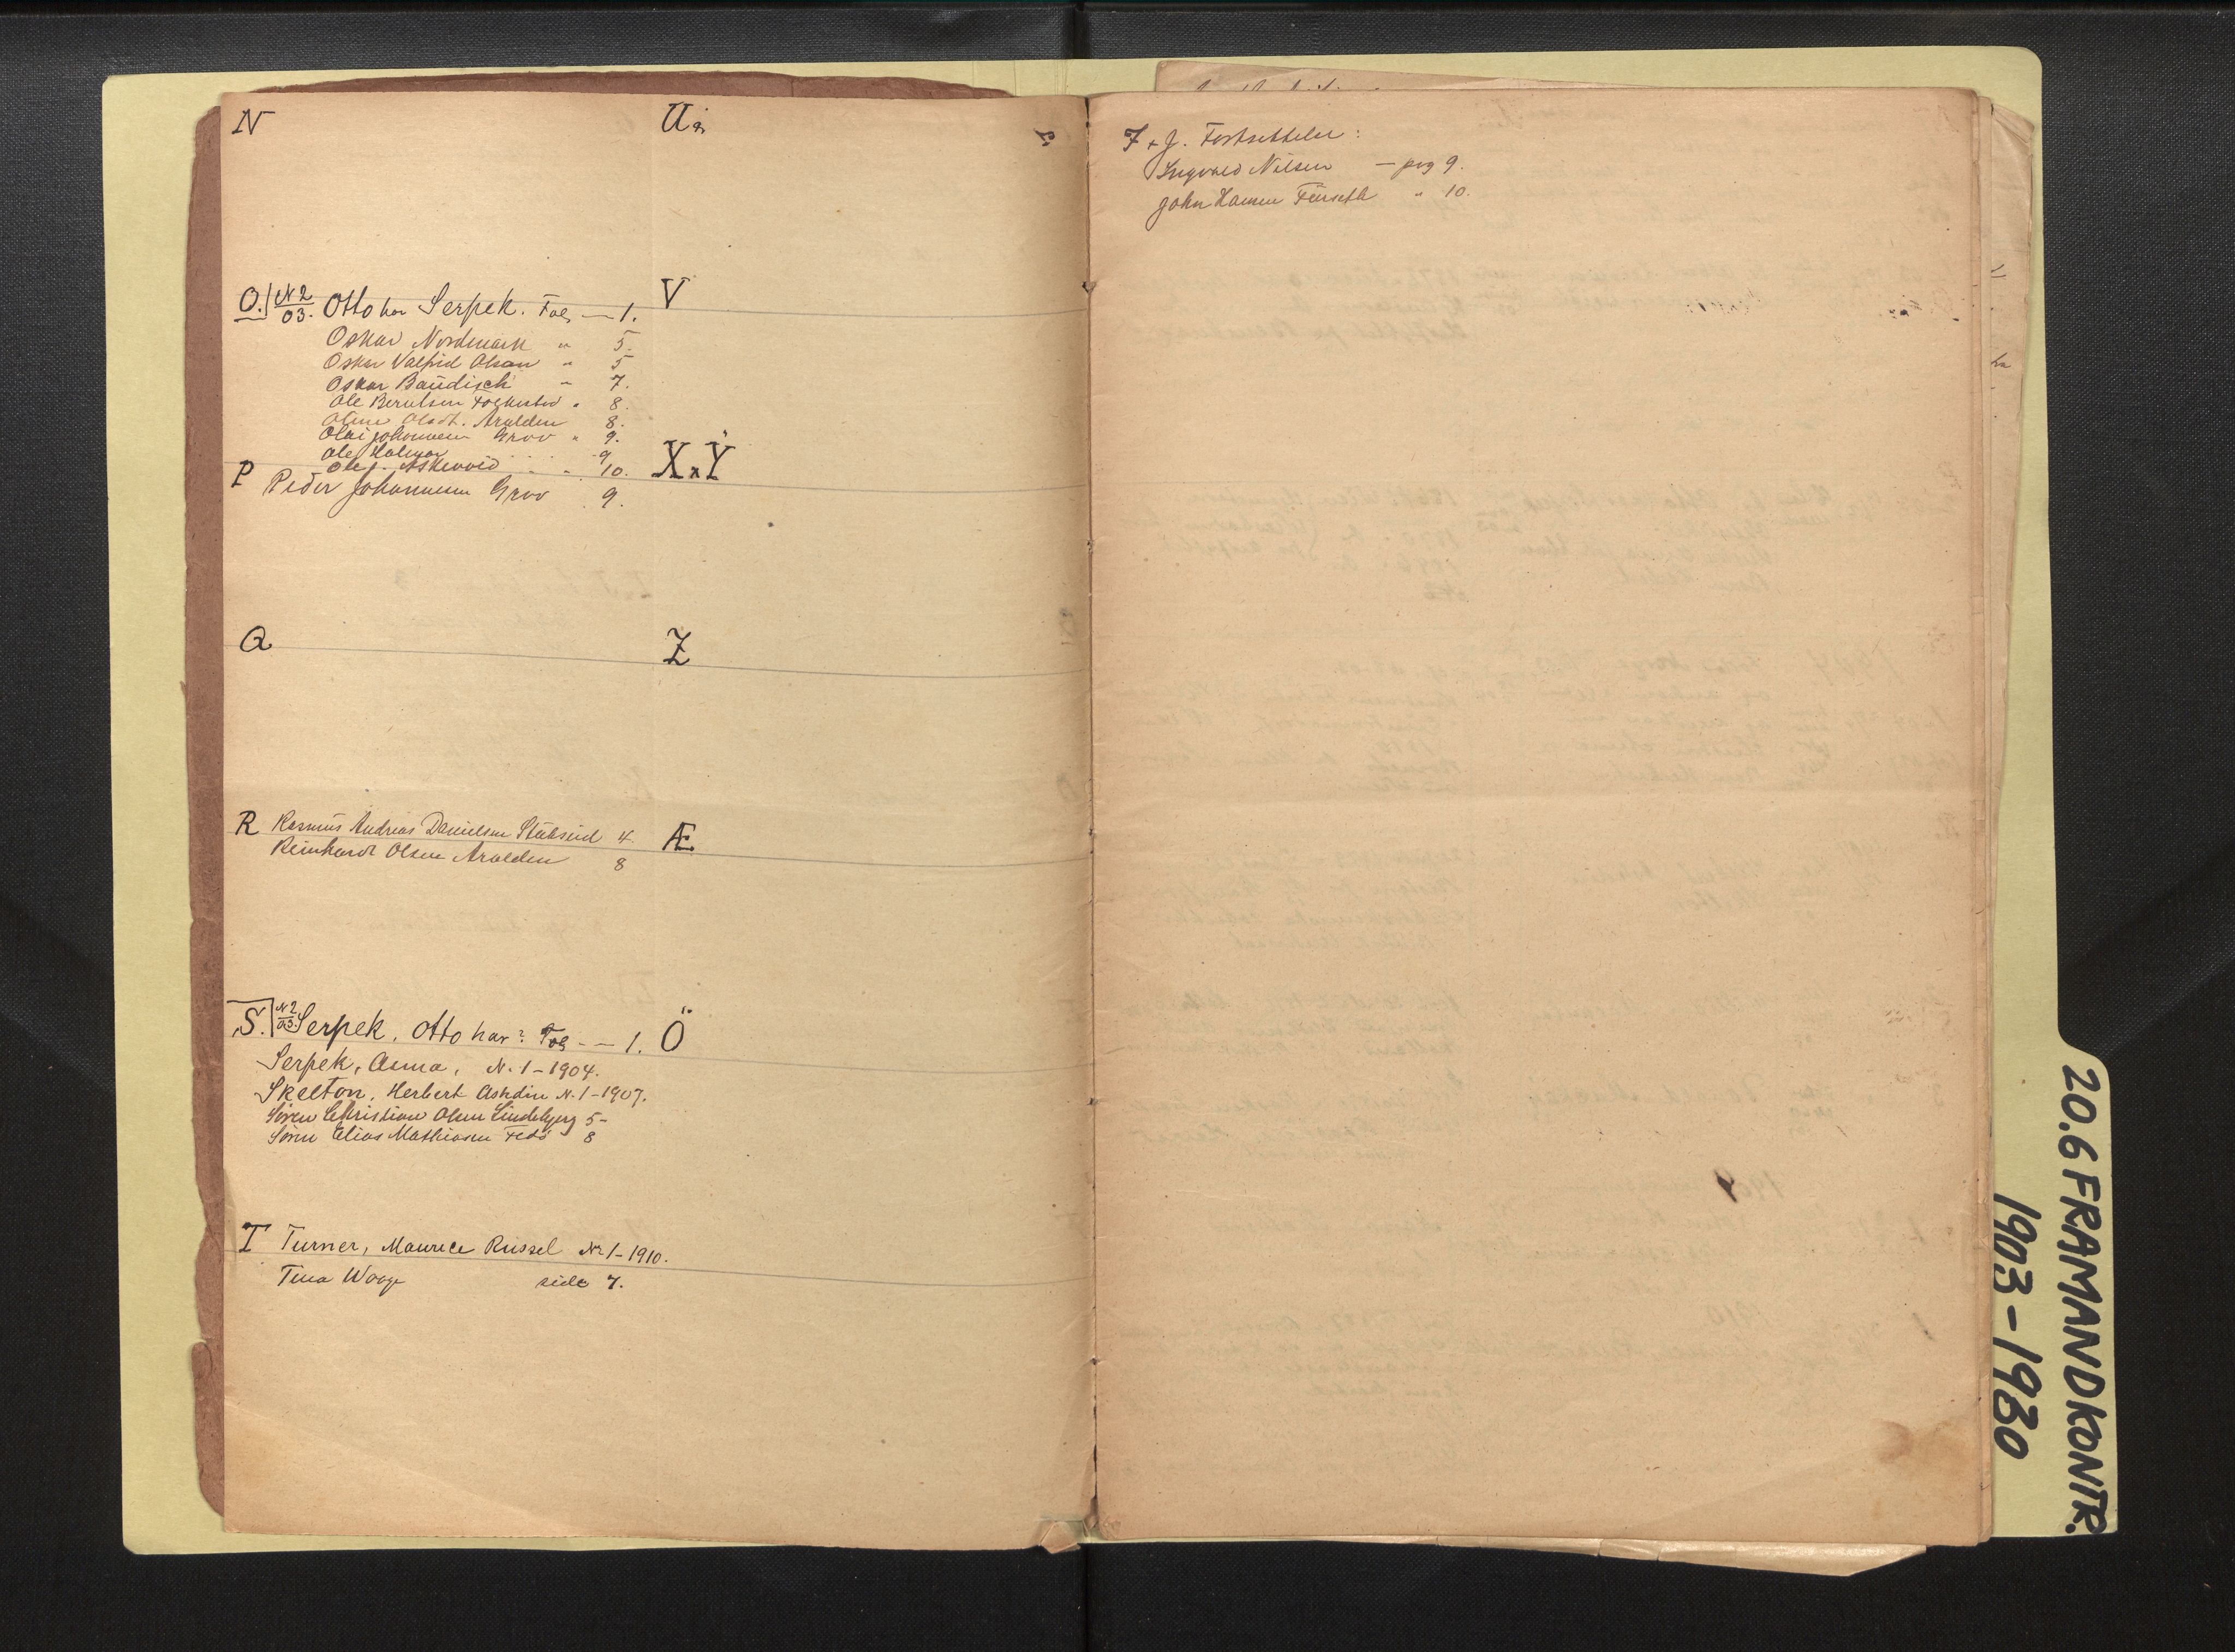 N
O. N2/03. Otto har Serpek. Fol, — 1.
Oskar Nordmark " 5.
Oskar Valfrid Olsson " 5
Oskar Baudisch " 7.
Ole Berntsen " 8.
Olsen Aralden 8.
Olai Johannesen Grov " 9.
Ole 9
Ole J. Askevold " 10.
P Peder Johannesen Grov 9.
Q
R Rasmus Andreas Danielsen Stubseid 4.
Reinhardt Olsen Aralden 8
S. N2/03. Serpek, Otto har: Fol — — 1.
Serpek, Anna, N. 1 - 1904.
Skelton, Herbert Ashdin N. 1 - 1907.
Sören Christian Olsen Lindebjerg 5 -
Sören Elias Mathiasen Fedö 8
T Turner, Maurice Russel No 1 - 1910.
Tina Waage side 7.
U
V
X Y
Z
Æ
Ö
I + J. Fortsettelse:
Ingvald Nilsen — pag 9.
John Hansen Furseth " 10.
20.6 FRAMANDKONTR.
1903-1930